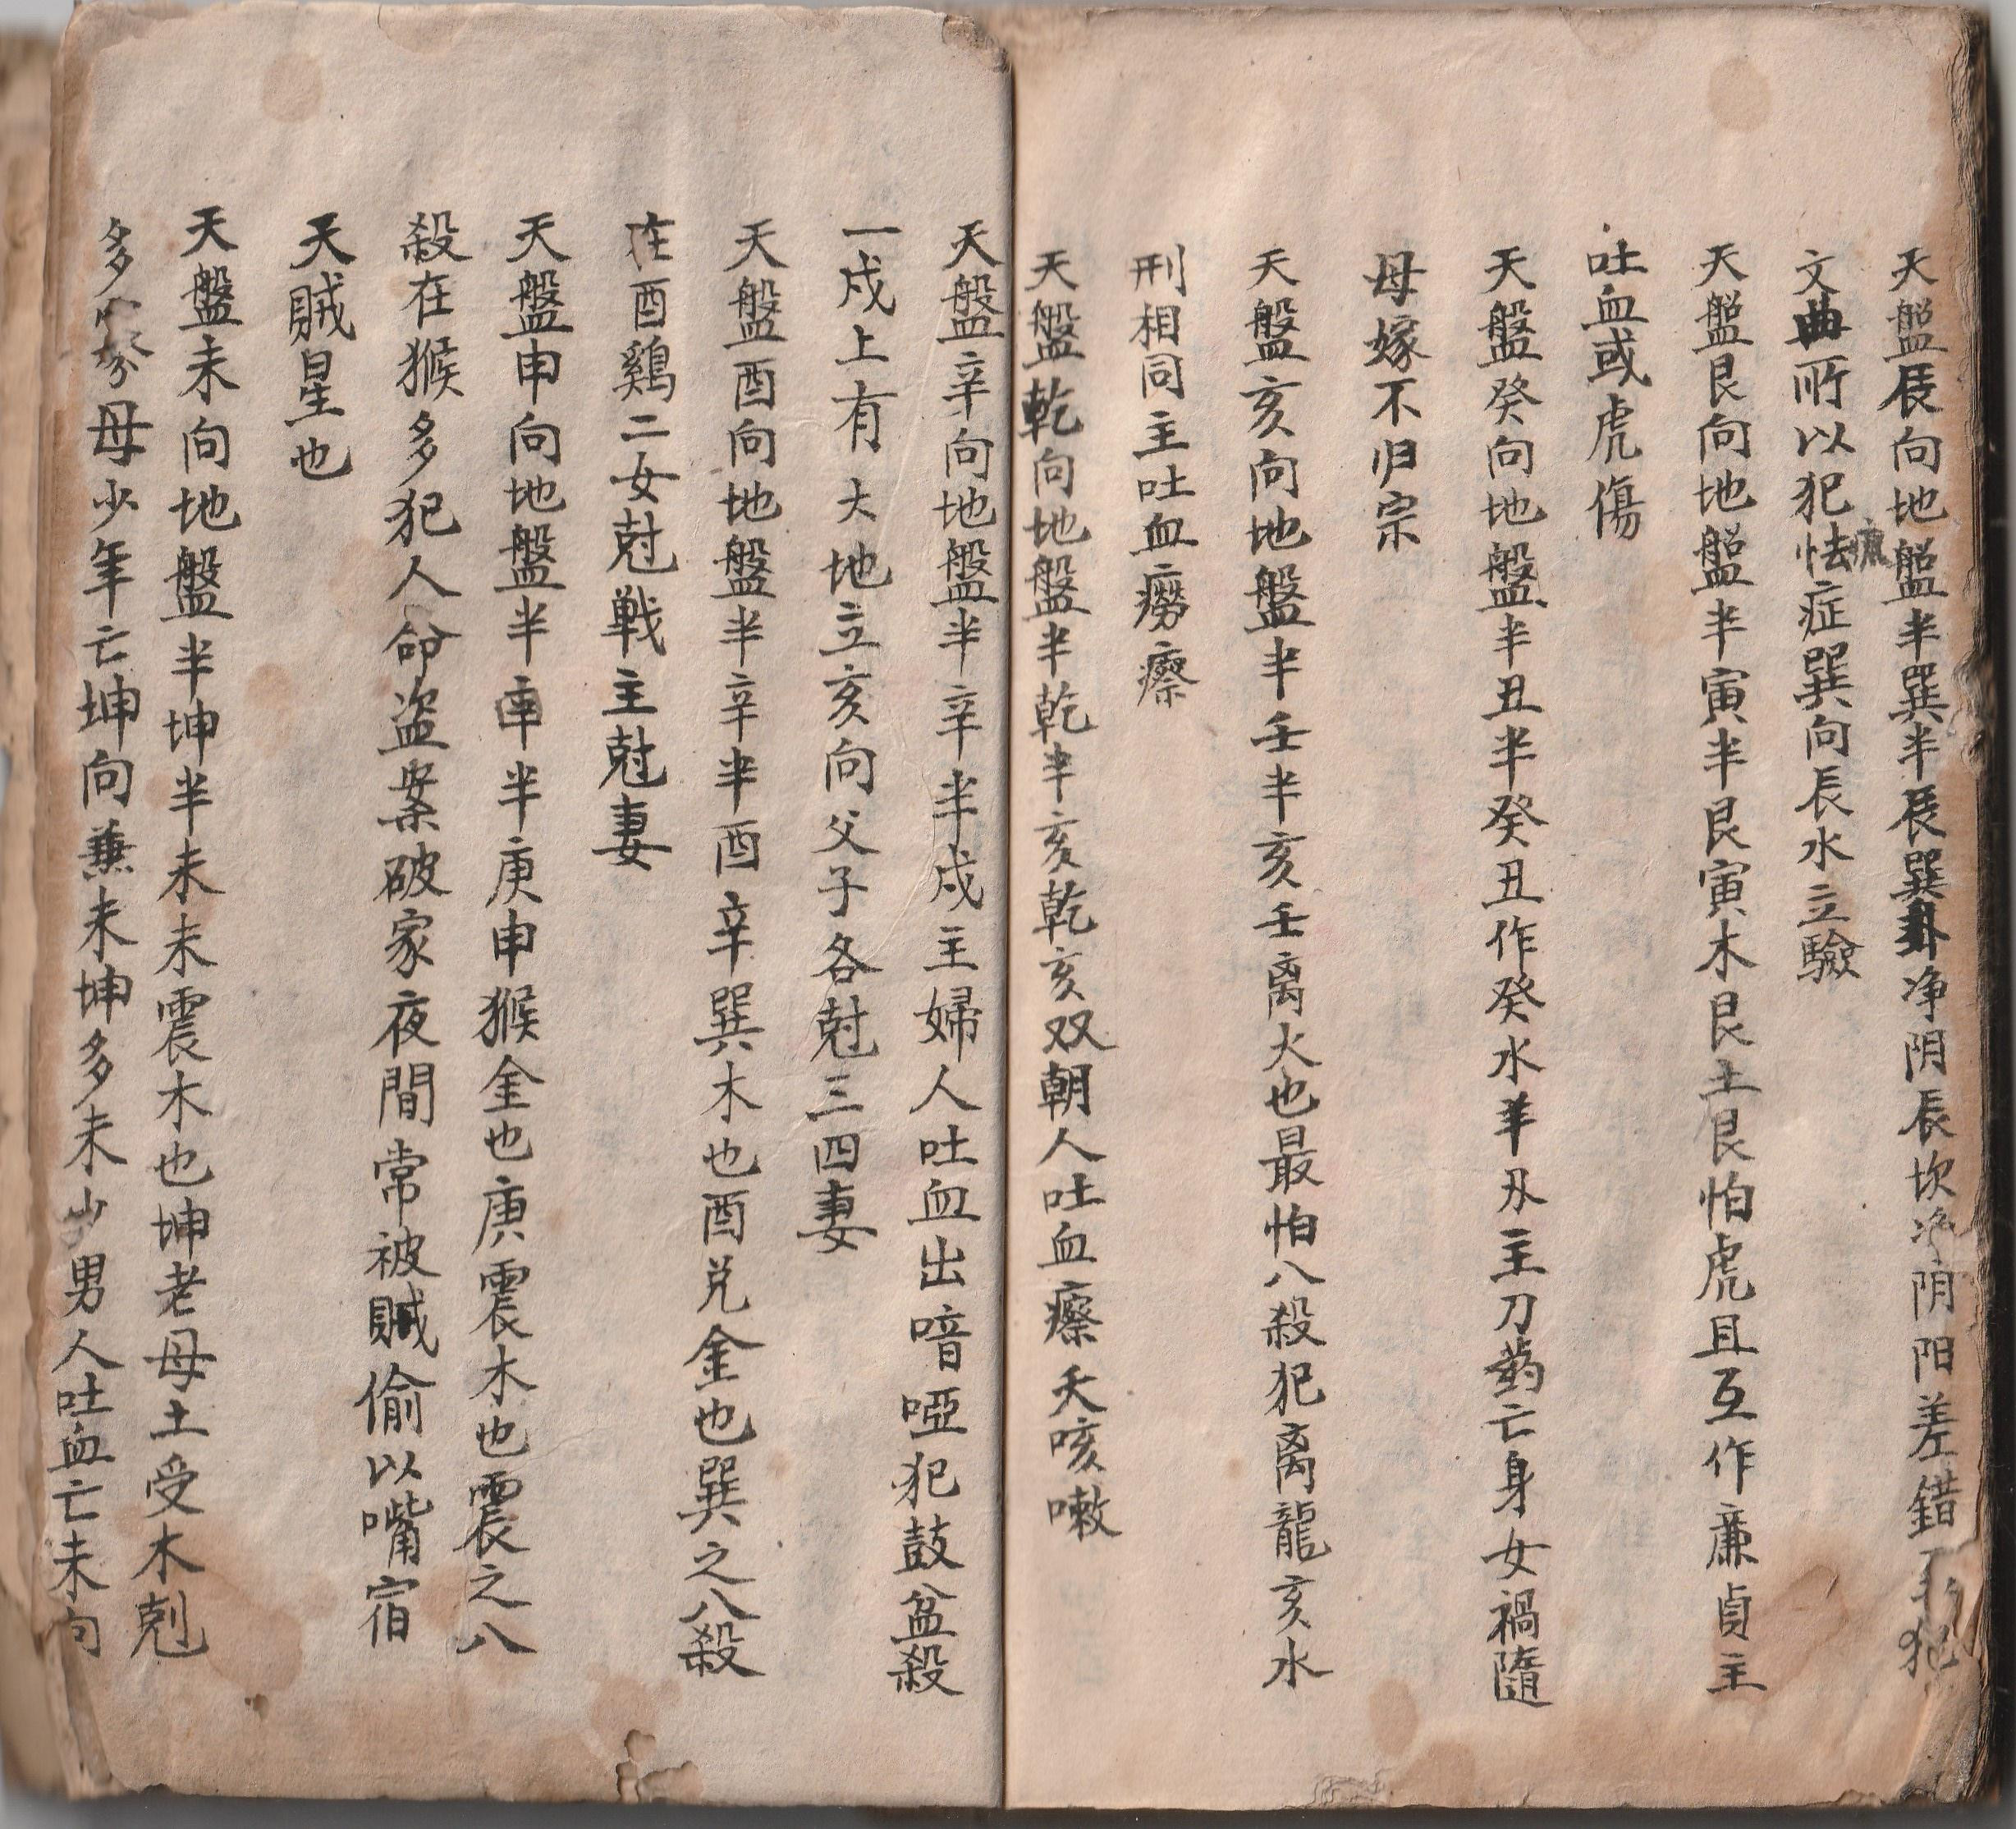 天盤辰向地盤半巽半辰巽卦净阴辰坎净阴阳差錯犯
文曲所以犯怯症巽向辰水立驗
天盤艮向地盤半寅半艮寅木艮土艮怕虎且互作廉貞主
吐血或虎傷
天盤癸向地盤半丑半癸丑作癸水羊刃主刀药亡身女禍隨
母嫁不归宗
天盤亥向地盤半壬半亥壬离火也最怕八殺犯离龍亥水
刑相同主吐血癆瘵
天盤乾向地盤半乾半亥乾亥双朝人吐血瘵夭咳嗽
天盤辛向地盤半辛半戍主婦人吐血出喑啞犯鼓盆殺
一戍上有大地立亥向父子各尅三四妻
天盤酉向地盤半辛半酉辛巽木也酉兑金也巽之八殺
在酉鷄二女尅戦主尅妻
天盤申向地盤半申半庚申猴金也庚震木也震之八
殺在猴多犯人命盗案破家夜間常被賊偷以嘴宿
天賊星也
天盤未向地盤半坤半未未震木也坤老母土受木剋
多母少年亡坤向兼未坤多未少男人吐血亡未向